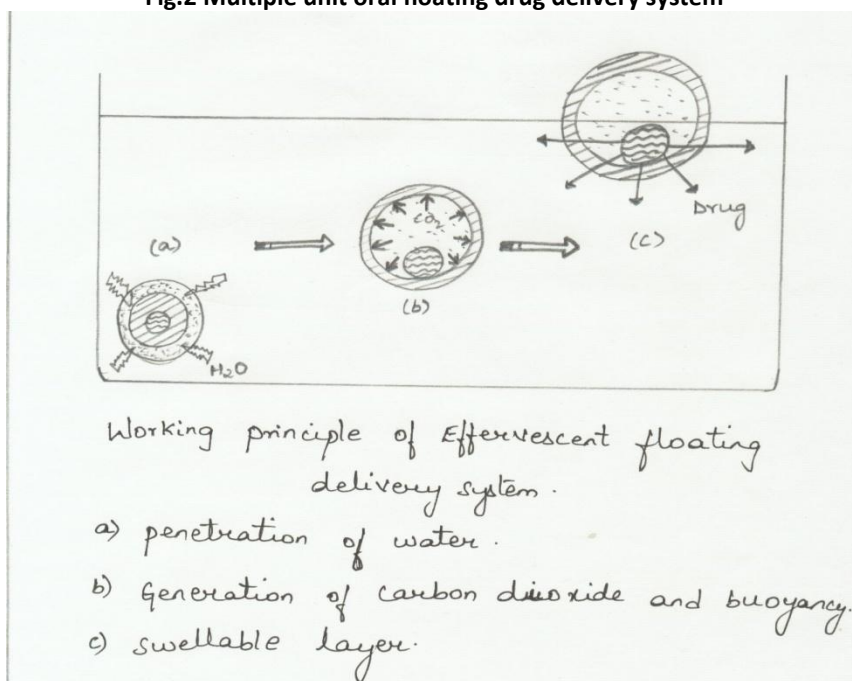 Fig.2 Multiple unit oral floating drug delivery system
(a)
CO2
(b)
(c)
Drug
H2O
Working principle of Effervescent floating
delivery system.
a) penetration of water.
b) Generation of carbon dioxide and buoyancy.
c) swellable layer.